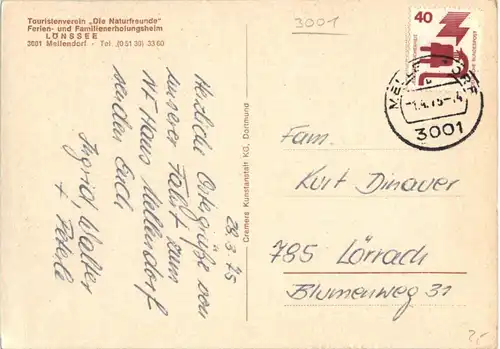 Touristenverein „Die Naturfreunde"
Ferien- und Familienerholungsheim
LÖNSSEE
3001 Mellendorf · Tel. (0 51 30) 33 60
3001
40
DEUTSCHE BUNDESPOST
MELLENDORF
-1.4.75-.4
3001
28.3.75
Herzliche Ostergrüße von
unserer Fahrt zum
Nf. Haus Mellendorf
senden Euch
Ingrid, Walter
+
Cramers Kunstanstalt KG, Dortmund
Fam.
Kurt Dinauer
785 Lörrach
Blumenweg 31
2,-